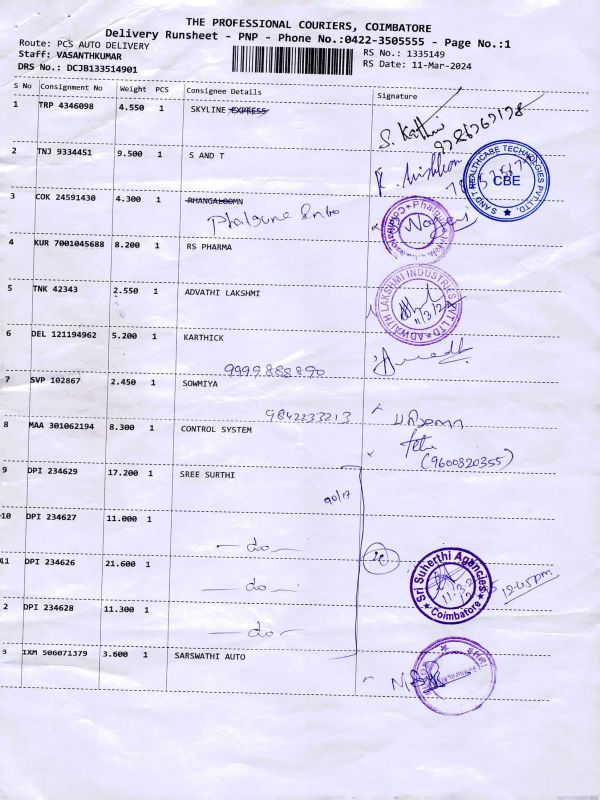 THE PROFESSIONAL COURIERS, COIMBATORE
Delivery Runsheet - PNP - Phone No.:0422-3505555 - Page No.:1
Route: PCS AUTO DELIVERY
Staff: VASANTHKUMAR
DRS No.: DCJB133514901
RS No.: 1335149
RS Date: 11-Mar-2024
S No Consignment No Weight PCS Consignee Details Signature
1 TRP 4346098 4.550 1 SKYLINE EXPRESS
S. Kathi
2 TNJ 9334451 9.500 1 S AND T
S AND T HEALTHCARE TECHNOLOGIES PVT.LTD.
CBE
3 COK 24591430 4.300 1
4 KUR 7001045688 8.200 1 RS PHARMA
5 TNK 42343 2.550 1 ADVATHI LAKSHMI
ADWAITH LAKSHMI INDUSTRIES PVT LTD
6 DEL 121194962 5.200 1 KARTHICK
9999888890
7 SVP 102867 2.450 1 SOWMIYA
9842233213
8 MAA 301062194 8.300 1 CONTROL SYSTEM
(9600820355)
9 DPI 234629 17.200 1 SREE SURTHI
10 DPI 234627 11.000 1
— do —
11 DPI 234626 21.600 1
— do —
Sri Suherthi Agencies
Coimbatore
12.45pm
2 DPI 234628 11.300 1
— do —
3 IXM 506071379 3.600 1 SARSWATHI AUTO